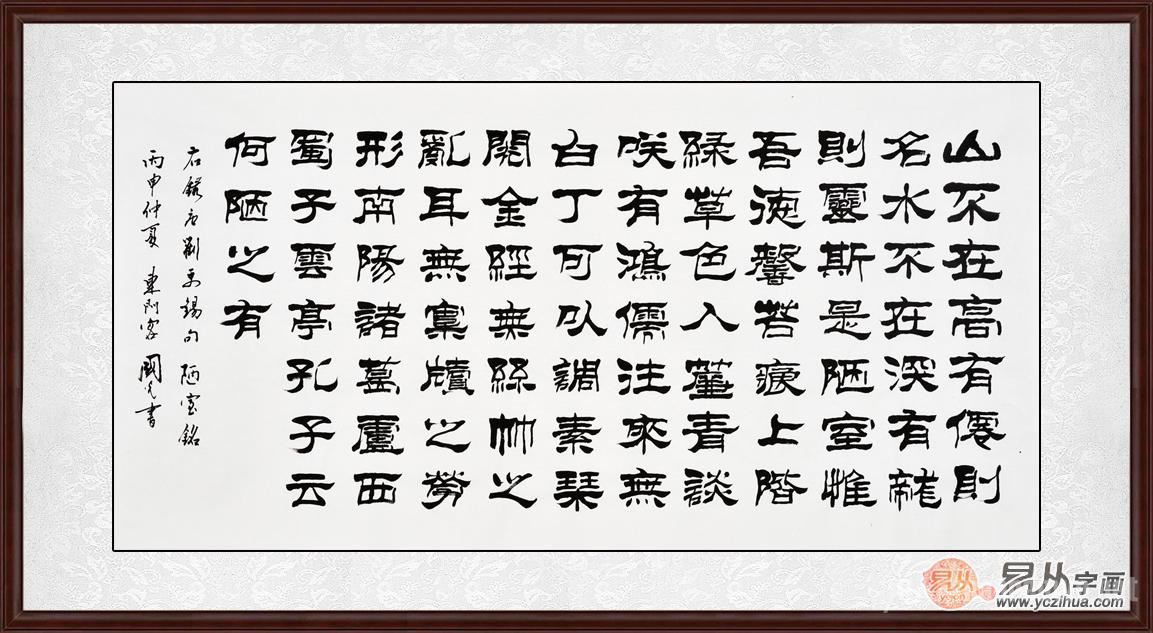 山不在高有僊則
名水不在深有龍
則靈斯是陋室惟
吾德馨苔痕上階
綠草色入簾青談
咲有鴻儒往來無
白丁可以調素琴
閱金經無絲竹之
亂耳無案牘之勞
形南陽諸葛廬西
蜀子雲亭孔子云
何陋之有
右錄唐劉禹錫句 陋室銘
丙申仲夏 東門客 國 書
易从字画
www.yczihua.com